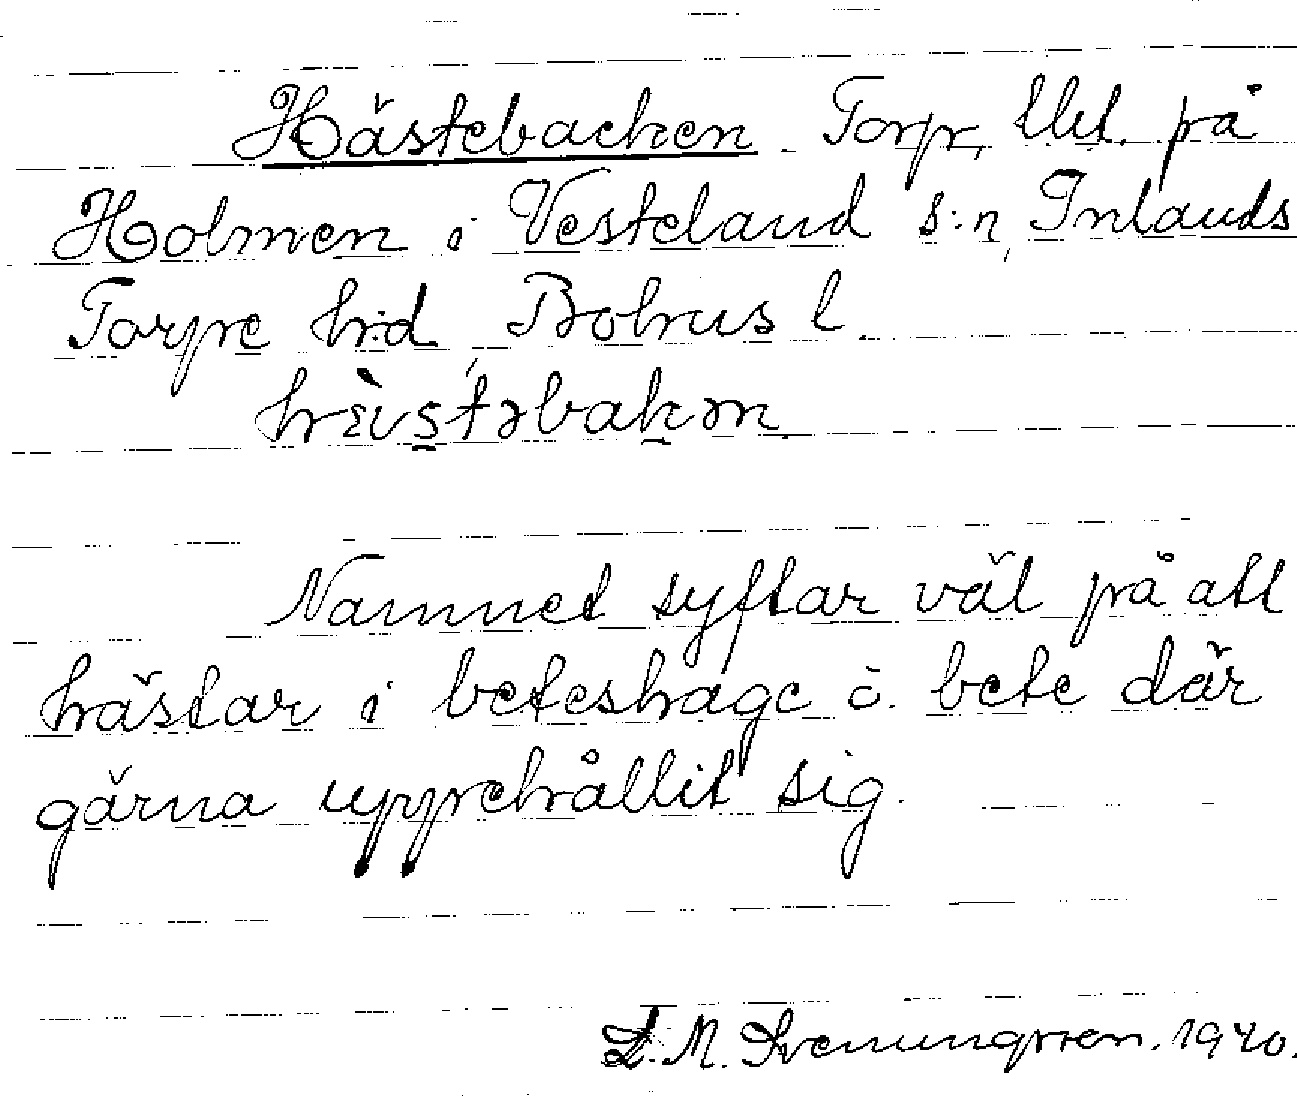 Hästebacken. Torp, Utl. på
Holmen i Vesteland s:n, Inlands
Torpe h:d, Bohus l.
hɛ̀ıstəbakən
Namnet syftar väl på att
hästar i beteshage o. bete där
gärna uppehållit sig.
L. M. Svenungsson. 1940.